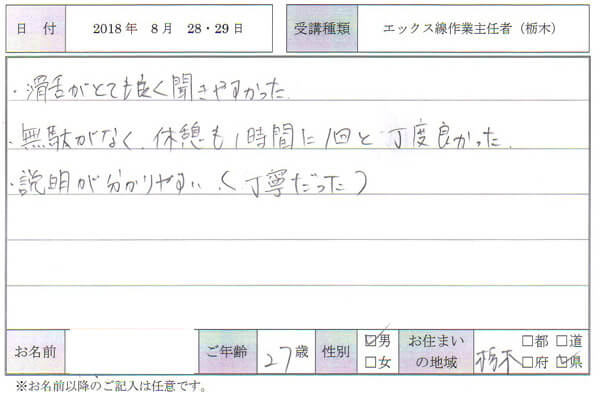 日 付 2018年 8月 28・29日 受講種類 エックス線作業主任者（栃木）
・滑舌がとても良く聞きやすかった.
・無駄がなく、休憩も1時間に1回と丁度良かった.
・説明が分かりやすい.(丁寧だった)
お名前 ご年齢 27歳 性別 ☑男 □女 お住まいの地域 栃木 □都 □道 □府 ☑県
※お名前以降のご記入は任意です。